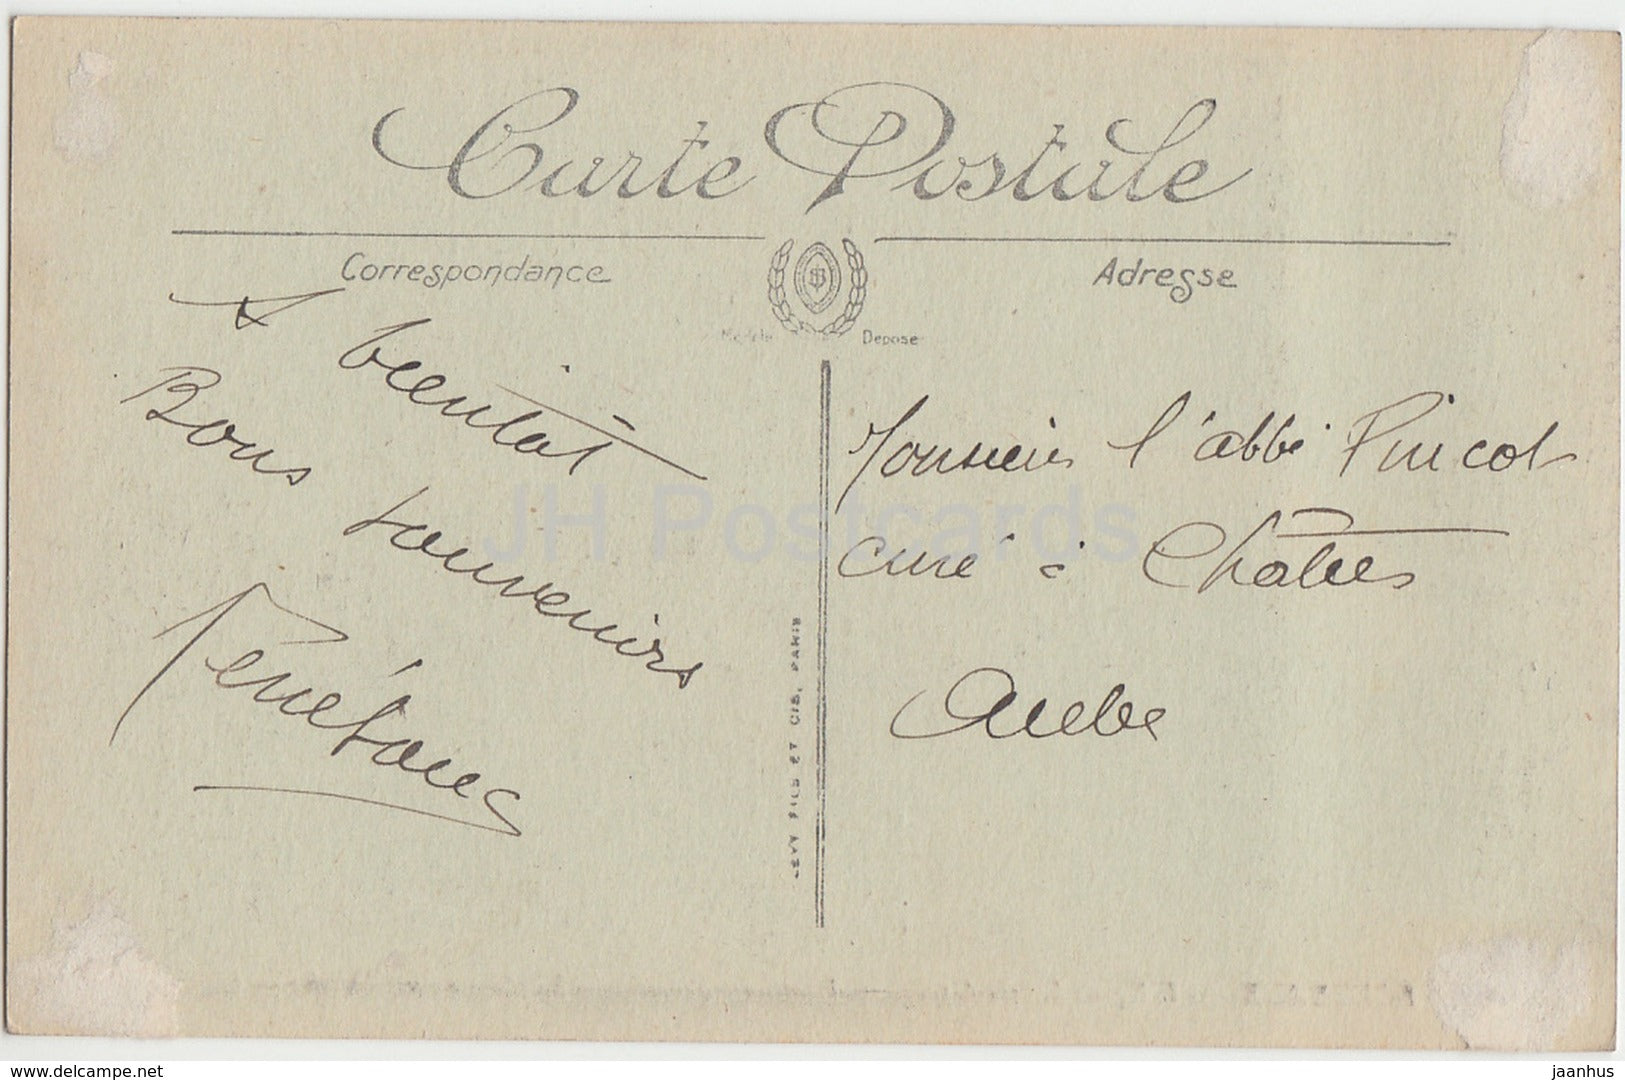 Carte Postale
Correspondance
Adresse
Modèle Déposé
A bientôt
Bons souvenirs
Monsieur l'abbé Pincot
curé à Châtres
Aube
LEVY FILS ET CIE, PARIS
JH Postcards
delcampe.net
jaanhus